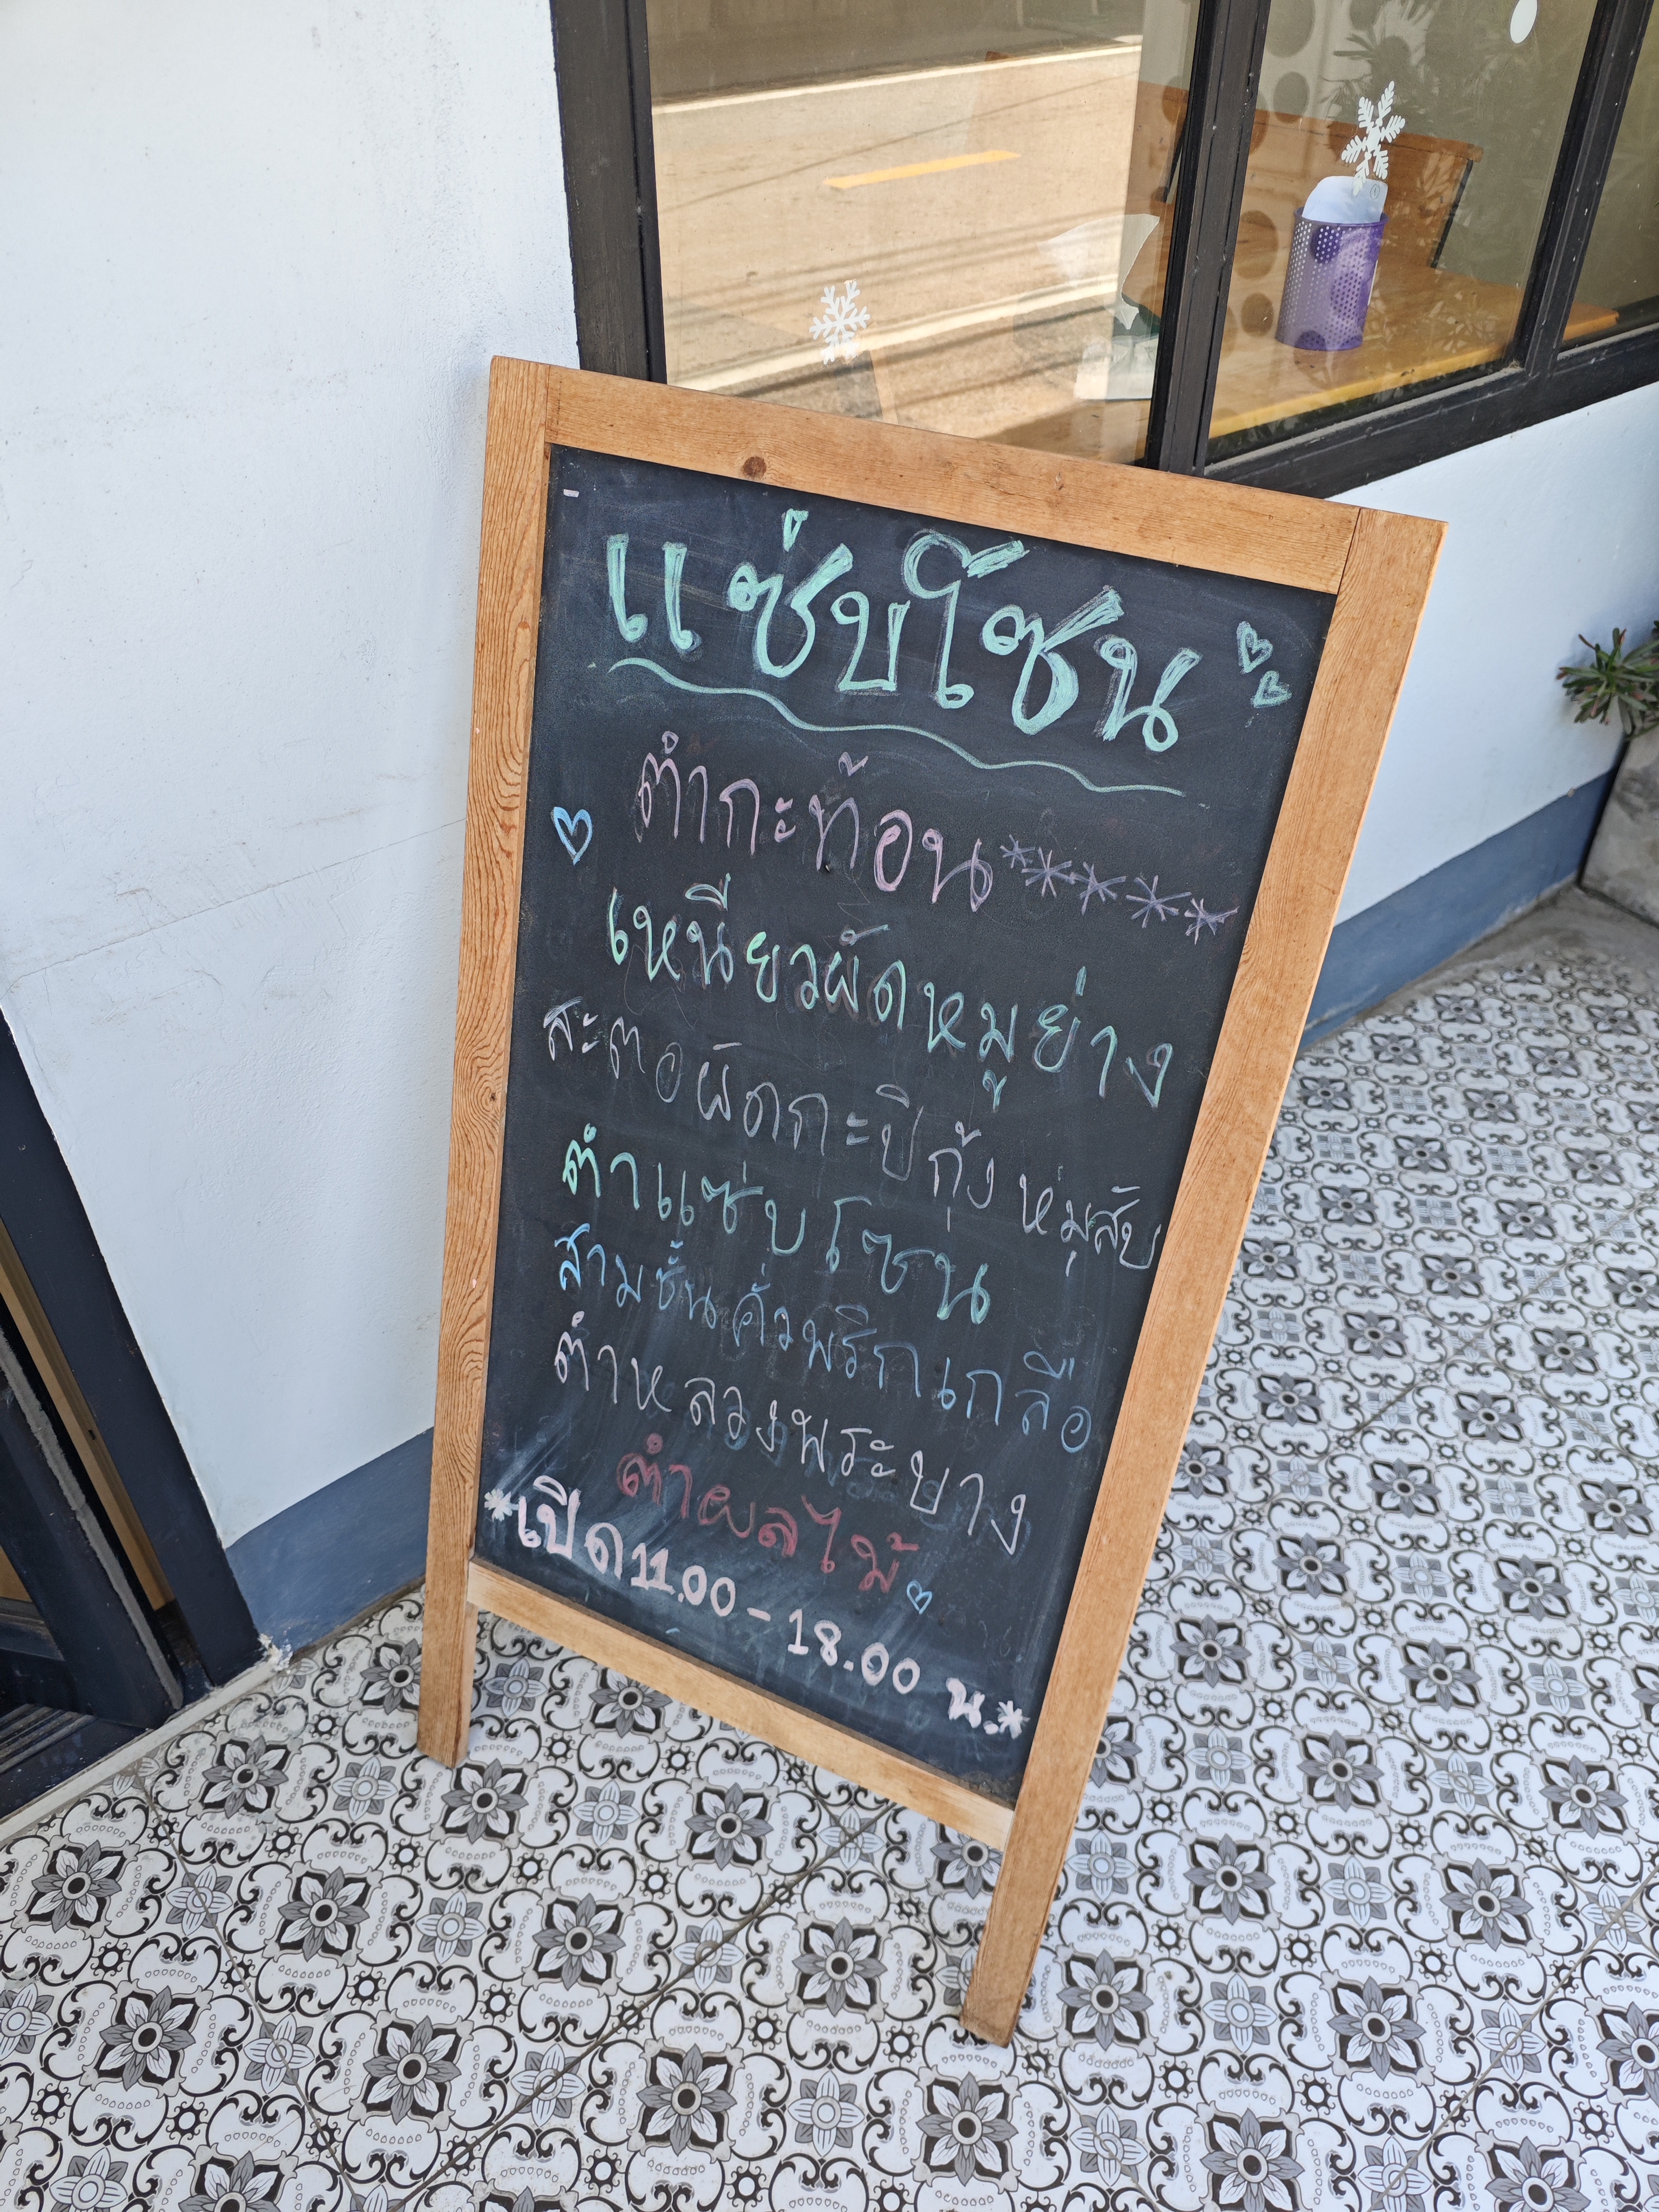 แซ่บโซน
ตำกะท้อน*****
เหนียวผัดหมูย่าง
สะตอผัดกะปิกุ้ง หมูสับ
ตำแซ่บโซน
สามชั้นคั่วพริกเกลือ
ตำหลวงพระบาง
ตำผลไม้
*เปิด 11.00 - 18.00 น.*